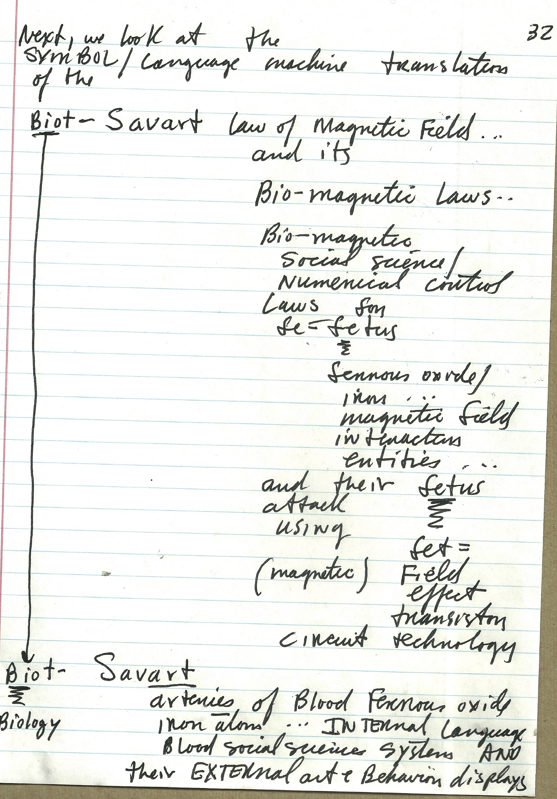 32
Next, we look at the
SYMBOL/Language machine translation
of the
Biot-Savart Law of Magnetic Field...
and its
Bio-magnetic Laws..
Bio-magnetic
Social science/
Numerical control
Laws for
fe=fetus
ferrous oxide/
iron ...
magnetic field
interaction
entities ...
and their fetus
attack
using
fet=
(magnetic) Field
effect
transistor
circuit technology
Biot- Savart
Biology
arteries of Blood Ferrous oxide
iron atom ... INTERNAL Language
Blood social sciences System AND
their EXTERNAL art e Behavior displays